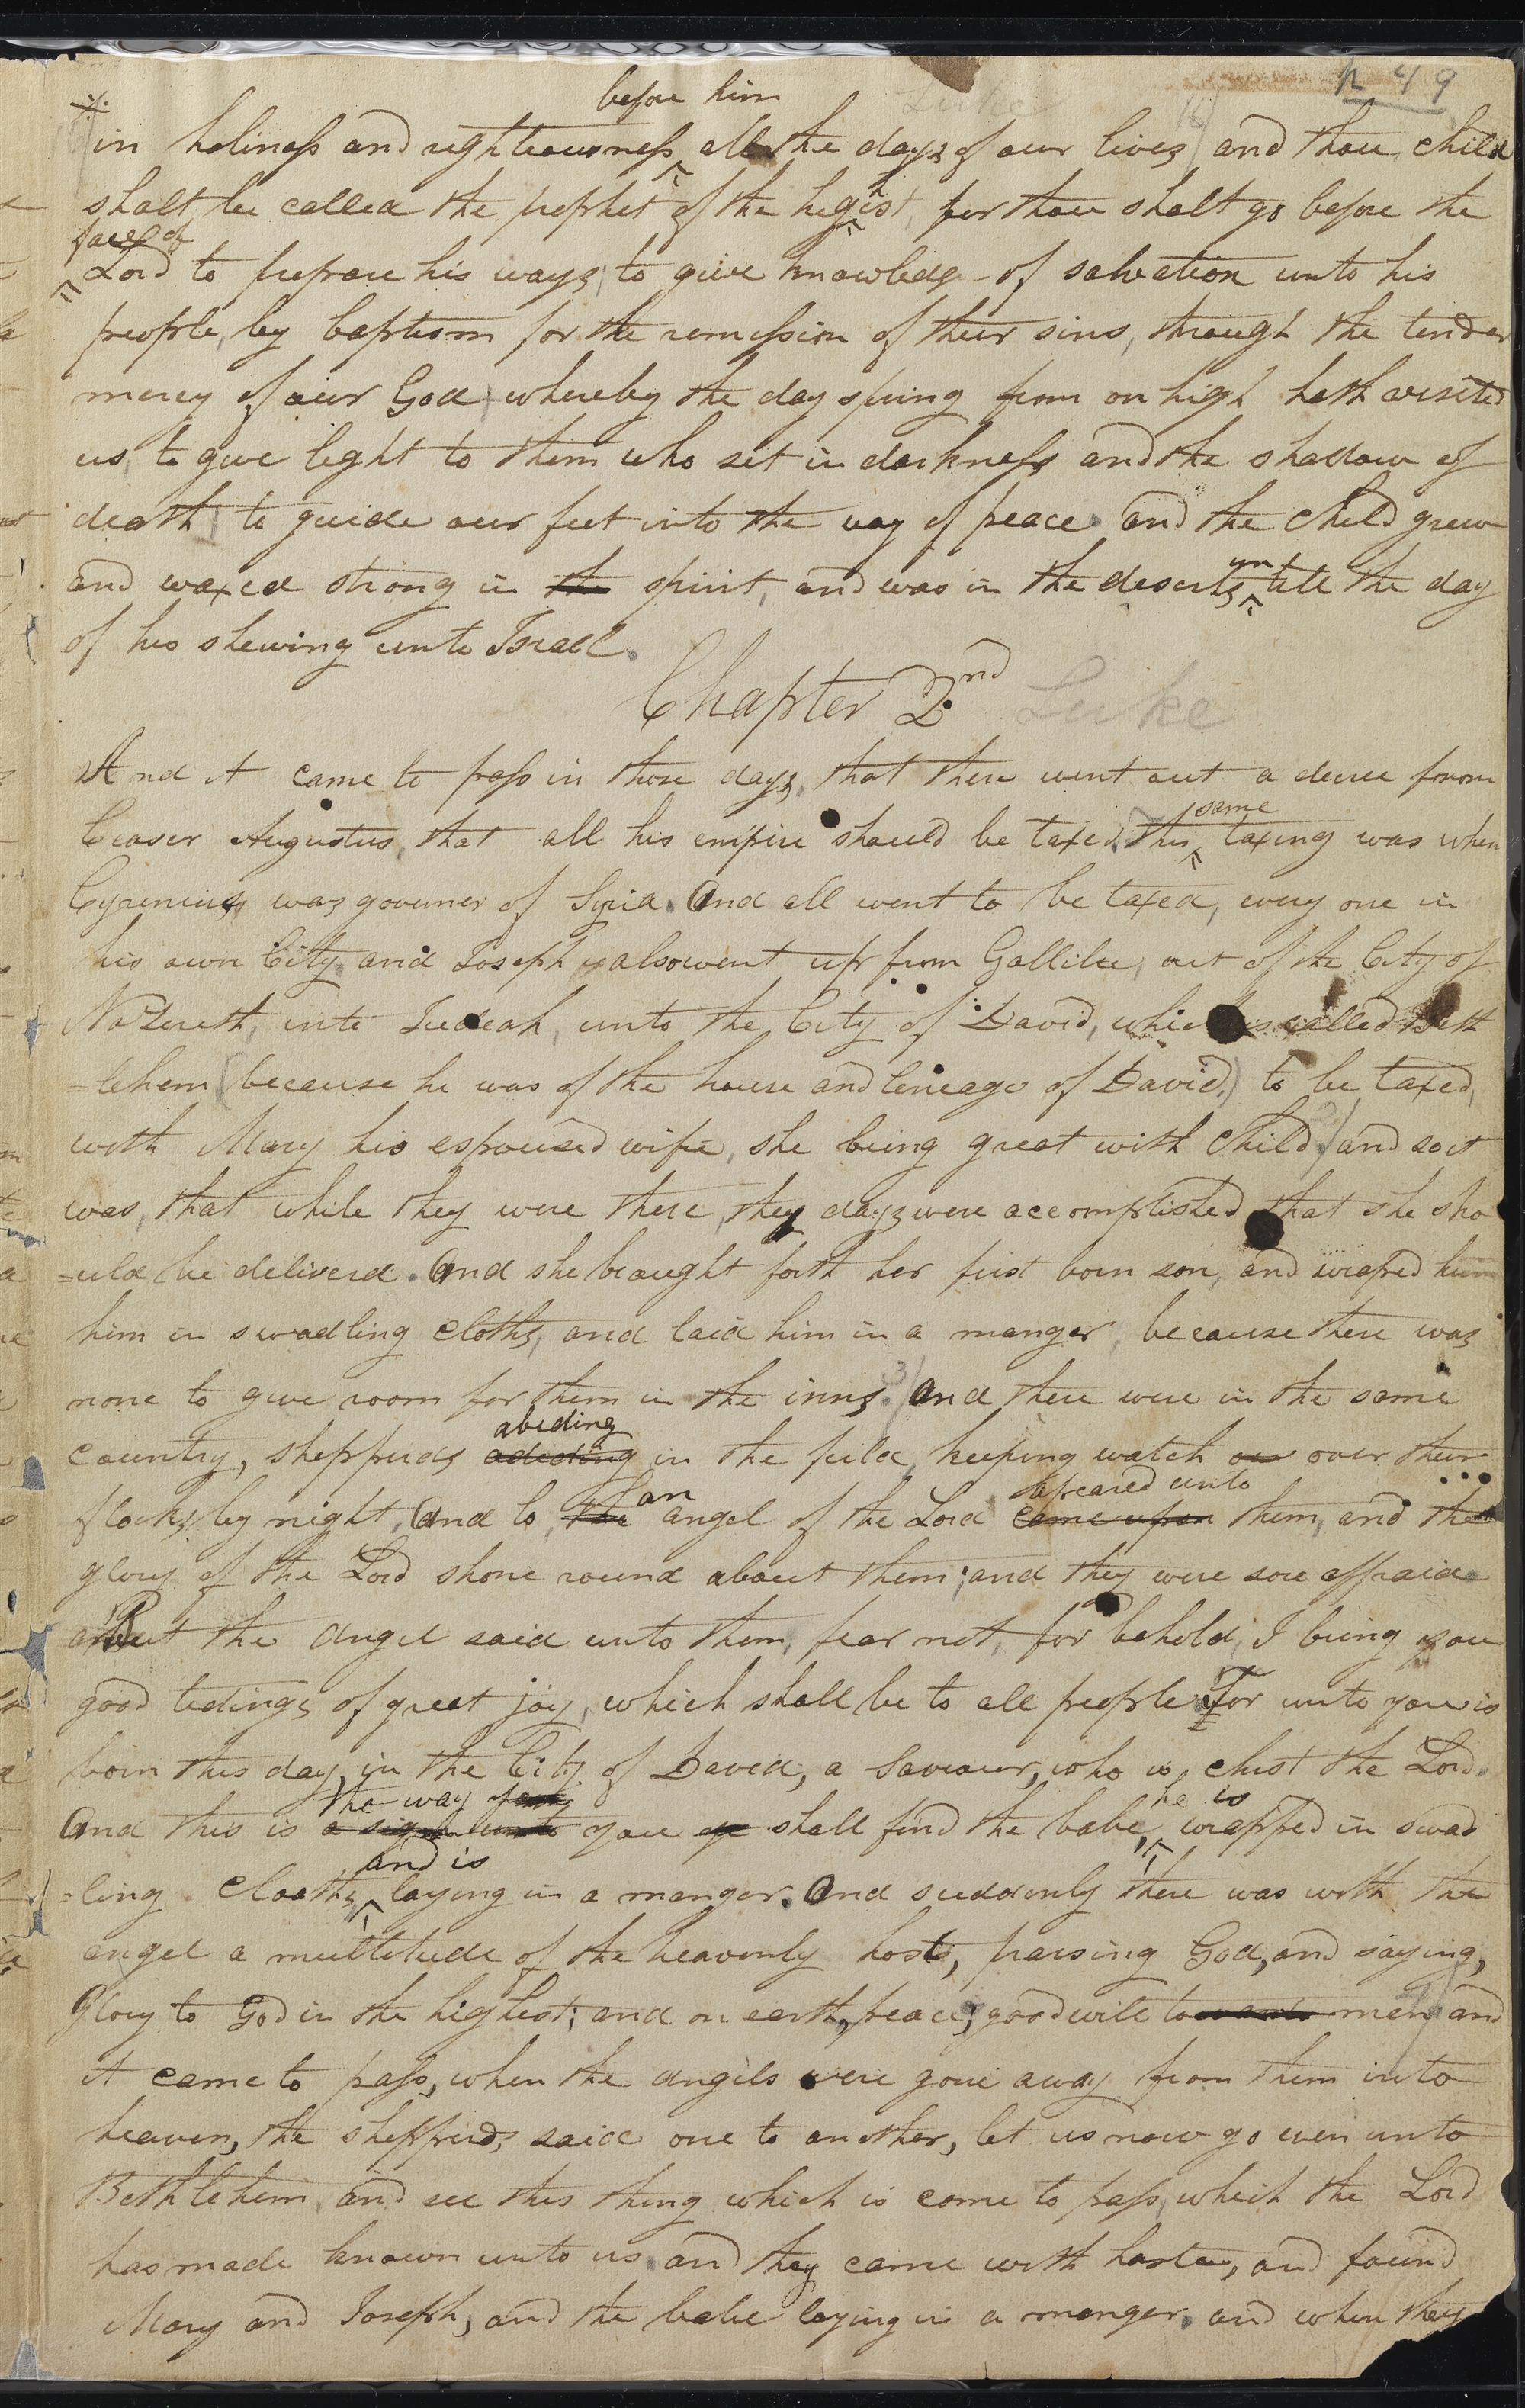 p 49
Luke
before him
in holiness and righteousness all the days of our lives and thou child
shalt be called the prophet of the higist, for thou shalt go before the
face of
Lord to prepare his ways, to give knowledge of salvation unto his
people, by baptism for the remission of their sins, through the tender
mercy of our God whereby the day spring from on high hath visited
us, to give light to them who set in darkness and the shadow of
death to guide our feet into the way of peace and the child grew
un
and waxed strong in the spirit, and was in the deserts till the day
of his shewing unto Israel.
Chapter 2nd Luke
And it came to pass in those days, that there went out a decree from
same
Ceaser Augustus, that all his empire should be taxed, this taxing was when
Cyrenius was governer of Syria. And all went to be taxed, every one in
his own City, and Joseph also went up from Gallilee, out of the City of
Nazereth, into Judeah, unto the City of David, which is called Beth
=lehem (because he was of the house and lineage of David,) to be taxed,
with Mary his espoused wife, she being great with child, and so it
was, that while they were there, they days were accomplished that she sho
=uld be deliverd. And she braught forth her first born son, and wraped him
him in swadling cloths, and laid him in a manger, because there was
3
none to give room for them in the inns. And there were in the same
abiding
country, sheppards adeding in the field, keeping watch ov over their
an apeared unto
flocks by night, And lo, the angel of the Lord came upon them, and the
glory of the Lord shone round about them; and they were sore affraid
But the angel said unto them, fear not, for behold, I bring you
good tidings of great joy, which shall be to all people For unto you is
born this day, in the City of David, a Saviour, who is christ the Lord.
the way he is
And this is a sign unto you ye shall find the babe, wrapped in swad
and is
=ling cloaths, laying in a manger. And suddenly there was with the
angel a multitude of the heavenly hosts, praising God, and saying,
Glory to God in the highest; and on earth, peace; good will towards men and
it came to pass, when the angels were gone away from them into
heaven, the shepperds said one to another, let us now go even unto
Bethlehem, and see this thing which is come to pass, which the Lord
has made known unto us. and they came with haste, and found
Mary and Joseph, and the babe laying in a manger. and when they